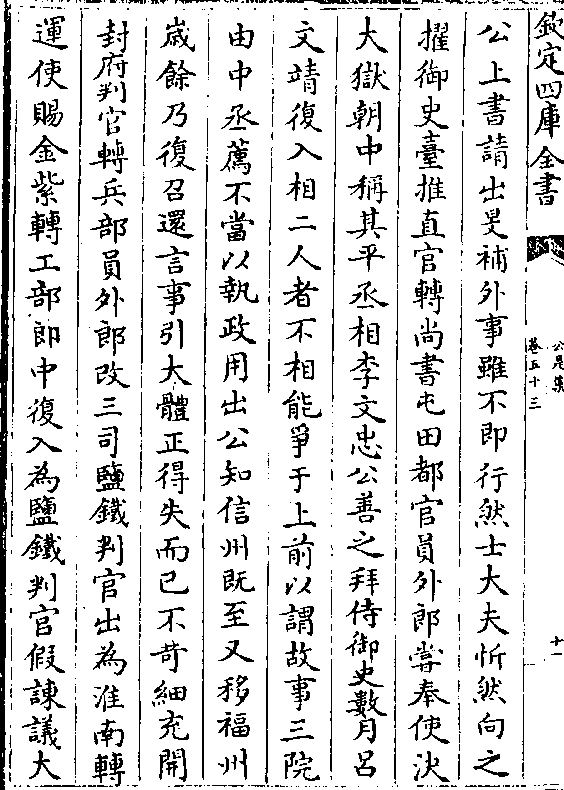 欽定四庫全書
公是集
卷五十三
十一
公上書請出旻補外事雖不即行然士大夫忻然向之
擢御史臺推直官轉尚書屯田都官員外郎嘗奉使決
大獄朝中稱其平丞相李文忠公善之拜侍御史數月呂
文靖復入相二人者不相能爭于上前以謂故事三院
由中丞薦不當以執政用出公知信州既至又移福州
歲餘乃復召還言事引大體正得失而已不苛細充開
封府判官轉兵部員外郎改三司鹽鐵判官出為淮南轉
運使賜金紫轉工部郎中復入為鹽鐵判官假諫議大